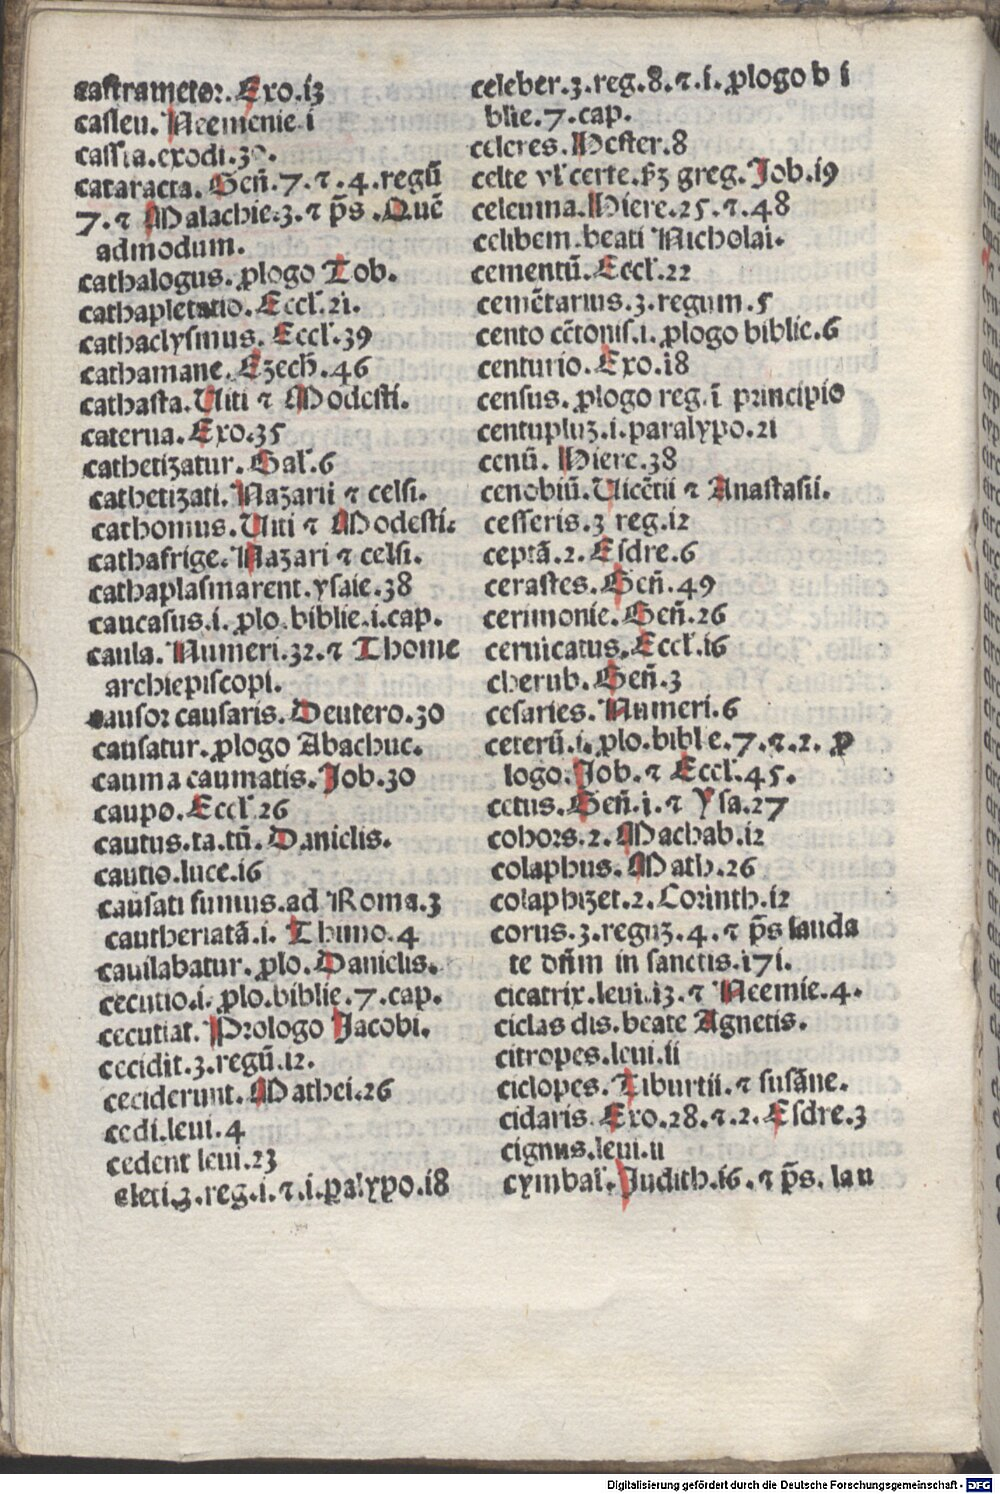 castrametor. Exo.i3
casleu. Neemenie.i
cassia.exodi.30.
cataracta. Geñ.7.⁊.4.regū
7.⁊ Malachie.3.⁊ p̄s .Quē
admodum.
cathalogus. ꝓlogo Tob.
cathapletatio. Eccl'.2i.
cathaclysmus. Eccl'.39
cathamane. Ezech̄.46
cathasta. Uiti ⁊ Modesti.
caterua. Exo.35
cathetizatur. Gal'.6
cathetizati. Nazarii ⁊ celsi.
cathomus. Uiti ⁊ Modesti.
cathafrige. Nazari ⁊ celsi.
cathaplasmarent.ysaie.38
caucasus.i. ꝓlo.biblie.i.cap.
caula. Numeri.32.⁊ Thome
archiepiscopi.
causor causaris. Deutero.30
causatur. ꝓlogo Abachuc.
cauma caumatis. Job.30
caupo. Eccl'.26
cautus.ta.tū. Danielis.
cautio.luce.i6
causati sumus.ad Roma.3
cautheriatā.i. Thimo.4
cauilabatur. ꝓlo. Danielis.
cecutio.i. ꝓlo.biblie.7.cap.
cecutiat. Prologo Jacobi.
cecidit.3.regū.i2.
ceciderunt. Mathei.26
cedi.leui.4
cedent leui.23
eleti.3.reg.i.⁊.i.ꝑalypo.i8
celeber.3.reg.8.⁊.i. ꝓlogo b i
blie.7.cap.
celeres. Hester.8
celte vl' certe.ẞꝫ greg. Job.i9
celeuma. Hiere.25.⁊.48
celibem.beati Nicholai.
cementū. Eccl'.22
cemētarius.3.regum.5
cento cētonis.i. ꝓlogo biblie.6
centurio. Exo.i8
census. ꝓlogo reg.ī principio
centupluꝫ.i.paralypo.2i
cenū. Hiere.38
cenobiū. Uicētii ⁊ Anastasii.
cesseris.3 reg.i2
ceptā.2. Esdre.6
cerastes. Geñ.49
cerimonie. Geñ.26
ceruicatus. Eccl'.i6
cherub. Geñ.3
cesaries. Numeri.6
ceterū.i. ꝓlo.bibl e.7.⁊.2. ꝓ
logo. Job.⁊ Eccl'.45.
cetus. Geñ.i.⁊ Ysa.27
cohors.2. Machab.i2
colaphus. Math.26
colaphizet.2. Corinth.i2
corus.3.reguꝫ.4.⁊ p̄s lauda
te dñm in sanctis.i7i.
cicatrix.leui.i3.⁊ Neemie.4.
ciclas dis.beate Agnetis.
citropes.leui.ii
ciclopes. Tiburtii.⁊ susāne.
cidaris. Exo.28.⁊.2. Esdre.3
cignus.leui.ii
cymbal'. Judith.i6.⁊ p̄s. lau
Digitalisierung gefördert durch die Deutsche Forschungsgemeinschaft - DFG